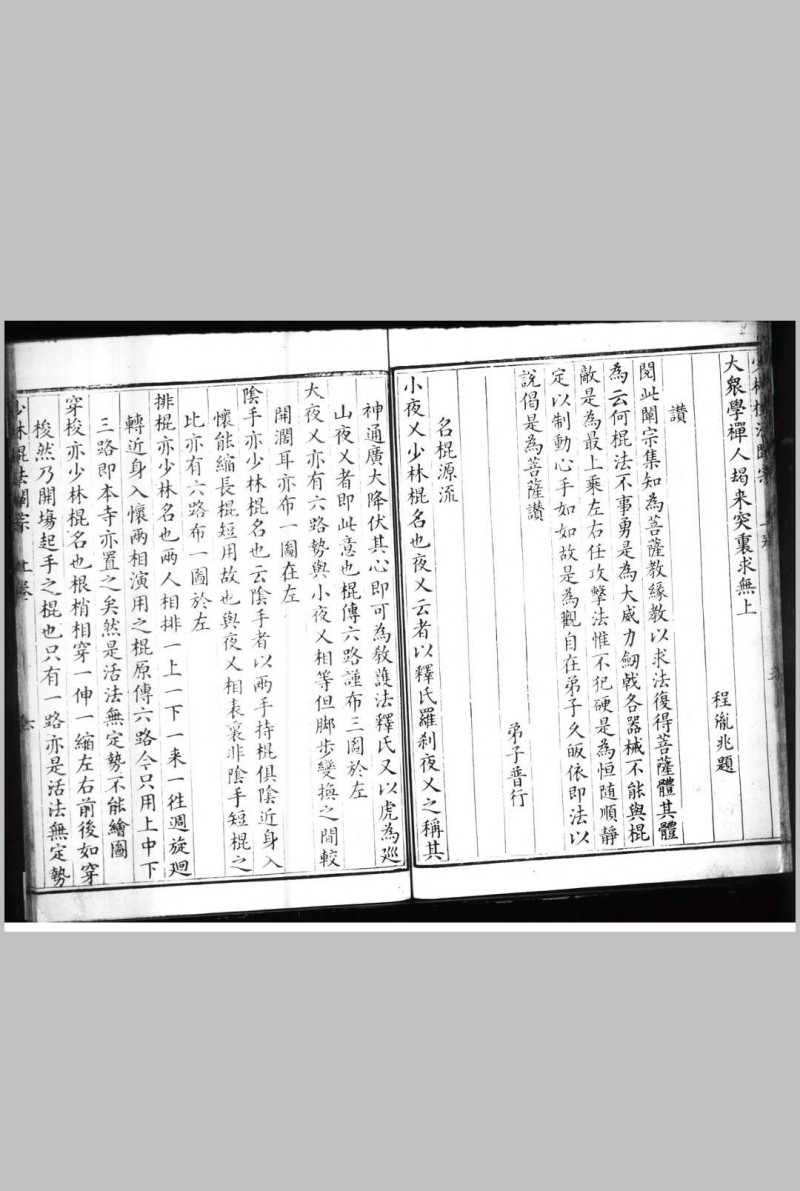 少林棍法闡宗 上卷
大衆學禪人朅来突裏求無上
程胤兆題
讃
閱此闡宗集知為菩薩教緣教以求法復得菩薩體其體
為云何棍法不事勇是為大威力劒戟各器械不能與棍
敵是為最上乘左右任攻擊法惟不犯硬是為恒随順静
定以制動心手如如故是為觀自在弟子久皈依即法以
說偈是為菩薩讃
弟子普行
名棍源流
小夜义少林棍名也夜义云者以釋氏羅刹夜义之稱其
神通廣大降伏其心即可為教護法釋氏又以虎為巡
山夜义者即此意也棍傳六路謹布三圖於左
大夜义亦有六路勢與小夜义相等但脚步變換之間較
開濶耳亦布一圖在左
陰手亦少林棍名也云陰手者以兩手持棍俱陰近身入
懷能縮長棍短用故也與夜义相表裏非陰手短棍之
比亦有六路布一圖於左
排棍亦少林名也兩人相排一上一下一来一徃週旋廻
轉近身入懷兩相演用之棍原傳六路今只用上中下
三路即本寺亦置之矣然是活法無定勢不能繪圖
穿梭亦少林棍名也根梢相穿一伸一縮左右前後如穿
梭然乃開塲起手之棍也只有一路亦是活法無定勢
少林棍法闡宗 上卷 六